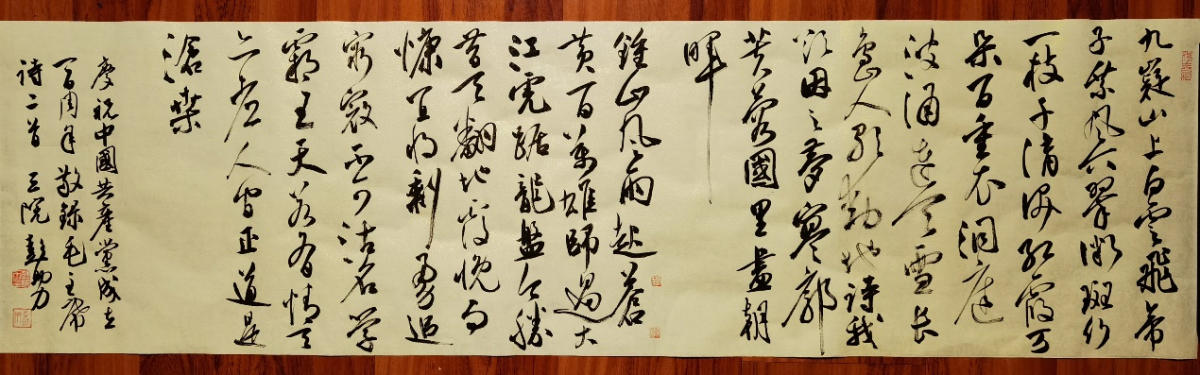 九嶷山上白雲飛帝
子乘風下翠微斑竹
一枝千滴淚红霞万
朵百重衣洞庭
波涌連天雪長
島人歌動地詩我
欲因之夢寥廓
芙蓉國里盡朝
暉
鍾山風雨起蒼
黄百萬雄師過大
江虎踞龍盤今勝
昔天翻地覆慨而
慷宜将剩勇追
窮寇不可沽名學
霸王天若有情天
亦老人间正道是
滄桑
慶祝中國共産黨成立
百周年敬録毛主席
詩二首 三院彭